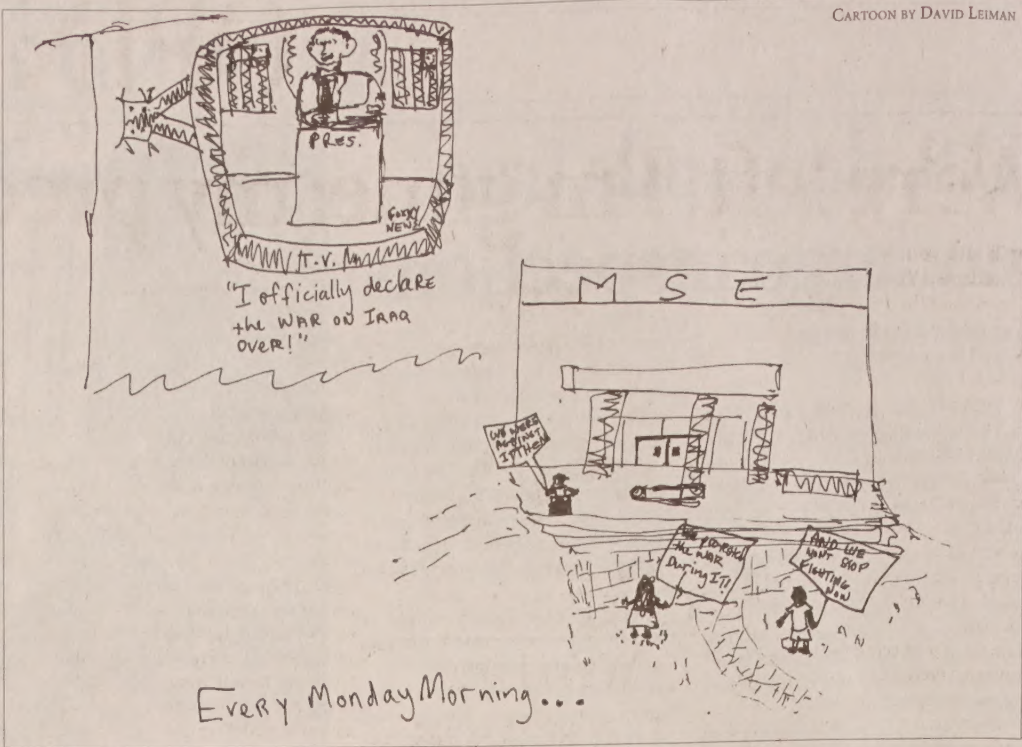 CARTOON BY DAVID LEIMAN
PRES.
FOXXY
NEWS
T.V.
"I officially declare
the WAR ON IRAQ
OVER!"
M S E
WE WERE
AGAINST
IT THEN
the WAR
During IT!
AND WE
WONT STOP
FIGHTING
NOW
Every Monday Morning...